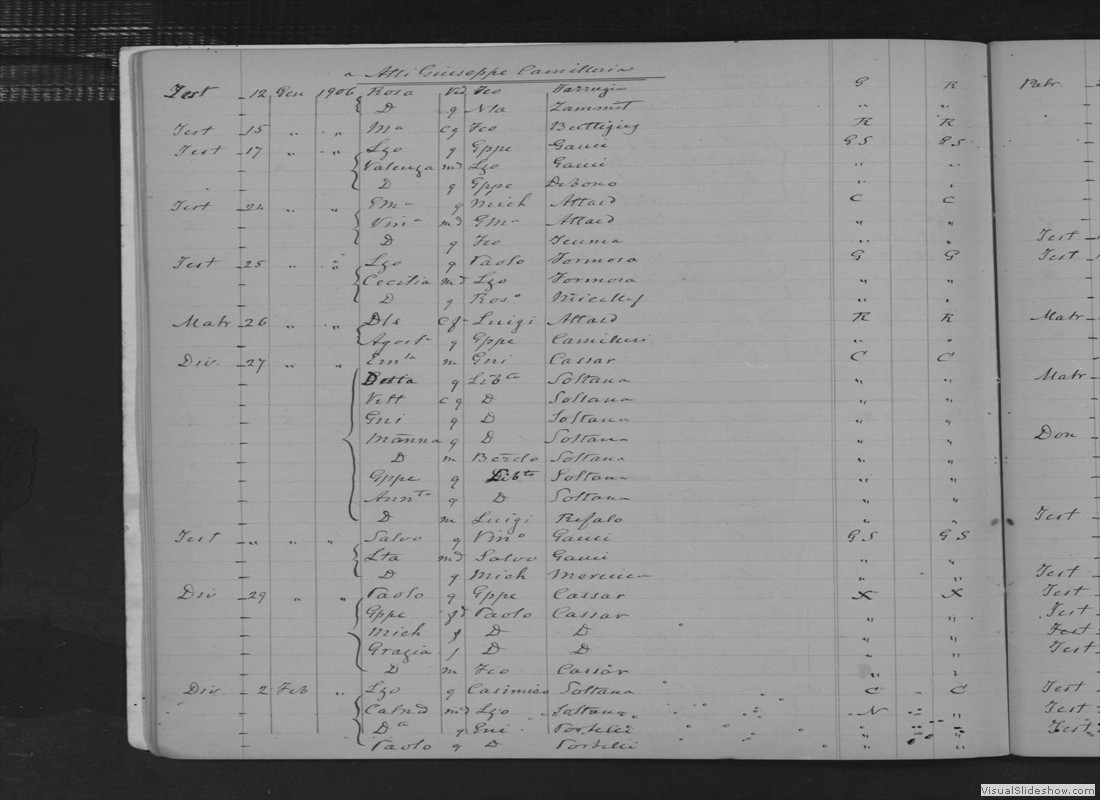 Atti Giuseppe Camilleri
Test 12 Gen 1906 Rosa Ved Fco Farrugia G R Pubr
D g Nta Zammit " "
Test 15 " " Ma cg Fco Buttigieg R R
Test 17 " " Lzo g Gppe Gauci GS GS
Valenza md Lzo Gauci " "
D g Gppe Debono " "
Test 24 " " Em g Mich Attard C C
Vin md Em Attard " "
D g Fco " " Test
Test 25 " " Lzo g Paolo Formosa G G Test
Cecilia md Lzo Formosa " "
D g Ros Micallef " "
Matr 26 " " Dls cf Luigi Attard R R Matr
Agost g Gppe Camilleri " "
Div. 27 " " Em m Gni Cassar C C
g Lib Soltana " " Matr
Vett cg D Soltana " "
Gni g D Soltana " "
Mānna g D Soltana " " Don
D m Soltana " "
Gppe g Lib Soltana " "
Ann g D Soltana " "
D m Luigi Refalo " " Test
Test " " " Salvo g Vin Gauci GS GS
Lta md Salvo Gauci " "
D g Mich Mercieca " " Test
Div 29 " " Paolo g Gppe Cassar X X Test
Gppe fd Paolo Cassar " " Test
Mich f D D " " Test
Grazia f D D " " Test
D m Fco Cassar " "
Div. 2 Feb " Lzo g Casimiro Soltana C C Test
md Lzo Soltana N " Test
D g Gni Portelli " " Test
Paolo g D Portelli " "
VisualSlideshow.com